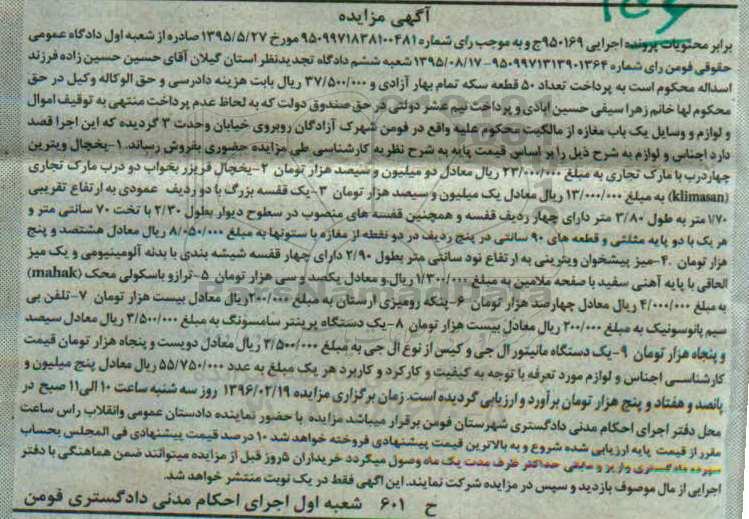 آگهی مزایده
برابر محتویات پرونده اجرایی ۹۵۰۱۶۹ج و به موجب رای شماره ۹۵۰۹۹۷۱۸۳۸۱۰۰۴۸۱ مورخ ۱۳۹۵/۵/۲۷ صادره از شعبه اول دادگاه عمومی
حقوقی فومن رای شماره ۹۵۰۹۹۷۱۳۱۳۹۰۱۳۶۴-۱۳۹۵/۰۸/۱۷ شعبه ششم دادگاه تجدیدنظر استان گیلان آقای حسین حسین زاده فرزند
اسداله محکوم است به پرداخت تعداد ۵۰ قطعه سکه تمام بهار آزادی و ۳۷/۵۰۰/۰۰۰ ریال بابت هزینه دادرسی و حق الوکاله وکیل در حق
محکوم لها خانم زهرا سیفی حسین آبادی و پرداخت نیم عشر دولتی در حق صندوق دولت که به لحاظ عدم پرداخت منتهی به توقیف اموال
و لوازم و وسایل یک باب مغازه از مالکیت محکوم علیه واقع در فومن شهرک آزادگان روبروی خیابان وحدت ۳ گردیده که این اجرا قصد
دارد اجناس و لوازم به شرح ذیل را بر اساس قیمت پایه به شرح نظریه کارشناسی طی مزایده حضوری بفروش رساند. ۱-یخچال ویترین
چهاردرب با مارک تجاری به مبلغ ۲۳/۰۰۰/۰۰۰ ریال معادل دو میلیون و سیصد هزار تومان ۲-یخچال فریزر بخواب دو درب مارک تجاری
(klimasan) به مبلغ ۱۳/۰۰۰/۰۰۰ ریال معادل یک میلیون و سیصد هزار تومان ۳-یک قفسه بزرگ با دو ردیف عمودی به ارتفاع تقریبی
۱/۷۰ متر به طول ۳/۸۰ متر دارای چهار ردیف قفسه و همچنین قفسه های منصوب در سطوح دیوار بطول ۲/۳۰ با تخت ۷۰ سانتی متر و
هر یک با دو پایه مثلثی و قطعه های ۹۰ سانتی در پنج ردیف در دو نقطه از مغازه با ستونها به مبلغ ۸/۰۵۰/۰۰۰ ریال معادل هشتصد و پنج
هزار تومان ۴-میز پیشخوان ویترینی به ارتفاع نود سانتی متر بطول ۲/۹۰ دارای چهار قفسه شیشه بندی با بدنه آلومینیومی و یک میز
الحاقی با پایه آهنی سفید با صفحه ملامین به مبلغ ۱/۳۰۰/۰۰۰ ریال و معادل یکصد و سی هزار تومان ۵-ترازو باسکولی محک (mahak)
به مبلغ ۴/۰۰۰/۰۰۰ ریال معادل چهارصد هزار تومان ۶-پنکه رومیزی ارستان به مبلغ ۲۰۰/۰۰۰ ریال معادل بیست هزار تومان ۷-تلفن بی
سیم پاناسونیک به مبلغ ۲۰۰/۰۰۰ ریال معادل بیست هزار تومان ۸-یک دستگاه پرینتر سامسونگ به مبلغ ۳/۵۰۰/۰۰۰ ریال معادل سیصد
و پنجاه هزار تومان ۹-یک دستگاه مانیتور ال جی و کیس از نوع ال جی به مبلغ ۲/۵۰۰/۰۰۰ ریال معادل دویست و پنجاه هزار تومان قیمت
کارشناسی اجناس و لوازم مورد تعرفه با توجه به کیفیت و کارکرد و کاربرد هر یک مبلغ به عدد ۵۵/۷۵۰/۰۰۰ ریال معادل پنج میلیون و
پانصد و هفتاد و پنج هزار تومان برآورد و ارزیابی گردیده است. زمان برگزاری مزایده ۱۳۹۶/۰۲/۱۹ روز سه شنبه ساعت ۱۰ الی ۱۱ صبح در
محل دفتر اجرای احکام مدنی دادگستری شهرستان فومن برقرار میباشد مزایده با حضور نماینده دادستان عمومی وانقلاب راس ساعت
مقرر از قیمت پایه ارزیابی شده شروع و به بالاترین قیمت پیشنهادی فروخته خواهد شد ۱۰ درصد قیمت پیشنهادی فی المجلس بحساب
سپرده دادگستری واریز و مابقی حداکثر ظرف مدت یک ماه وصول میگردد خریداران ۵ روز قبل از مزایده میتوانند ضمن هماهنگی با دفتر
اجرایی از مال موصوف بازدید و سپس در مزایده شرکت نمایند. این آگهی فقط در یک نوبت منتشر خواهد شد.
ح ۶۰۱ شعبه اول اجرای احکام مدنی دادگستری فومن